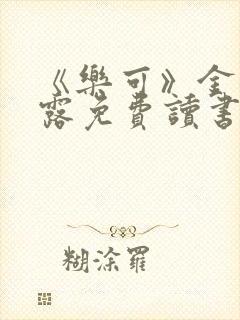 《樂可》金
露免費讀書
糊涂羅